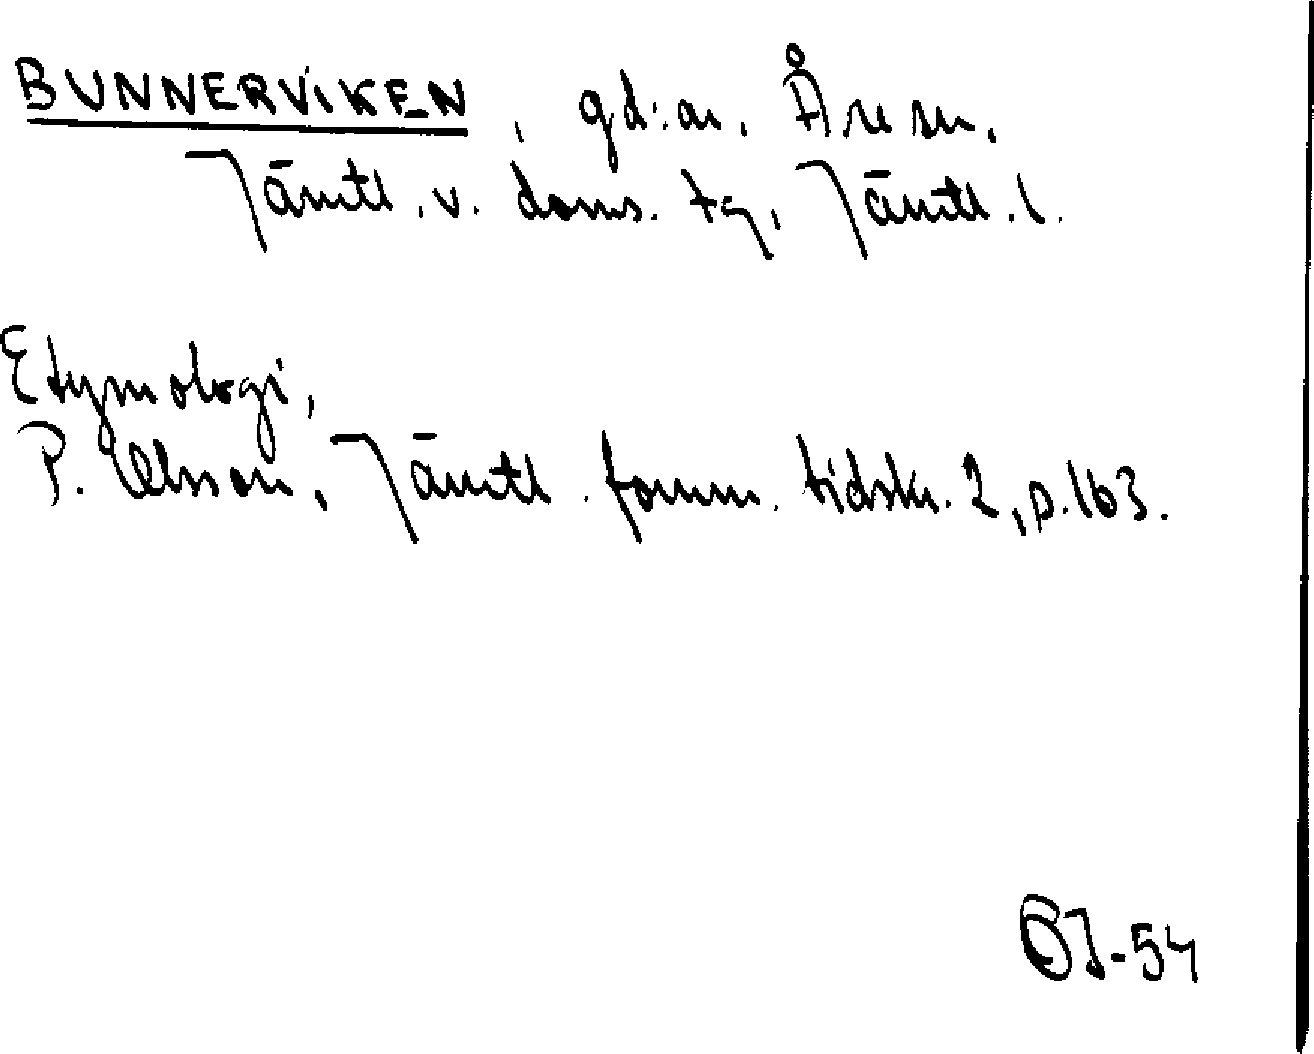 BUNNERVIKEN, gd:ar, Åre sn,
Jämtl. v. doms. tg, Jämtl. l.
Etymologi,
P. Olsson, Jämtl. fornm. tidskr. 2, p. 163.
ÖJ-54